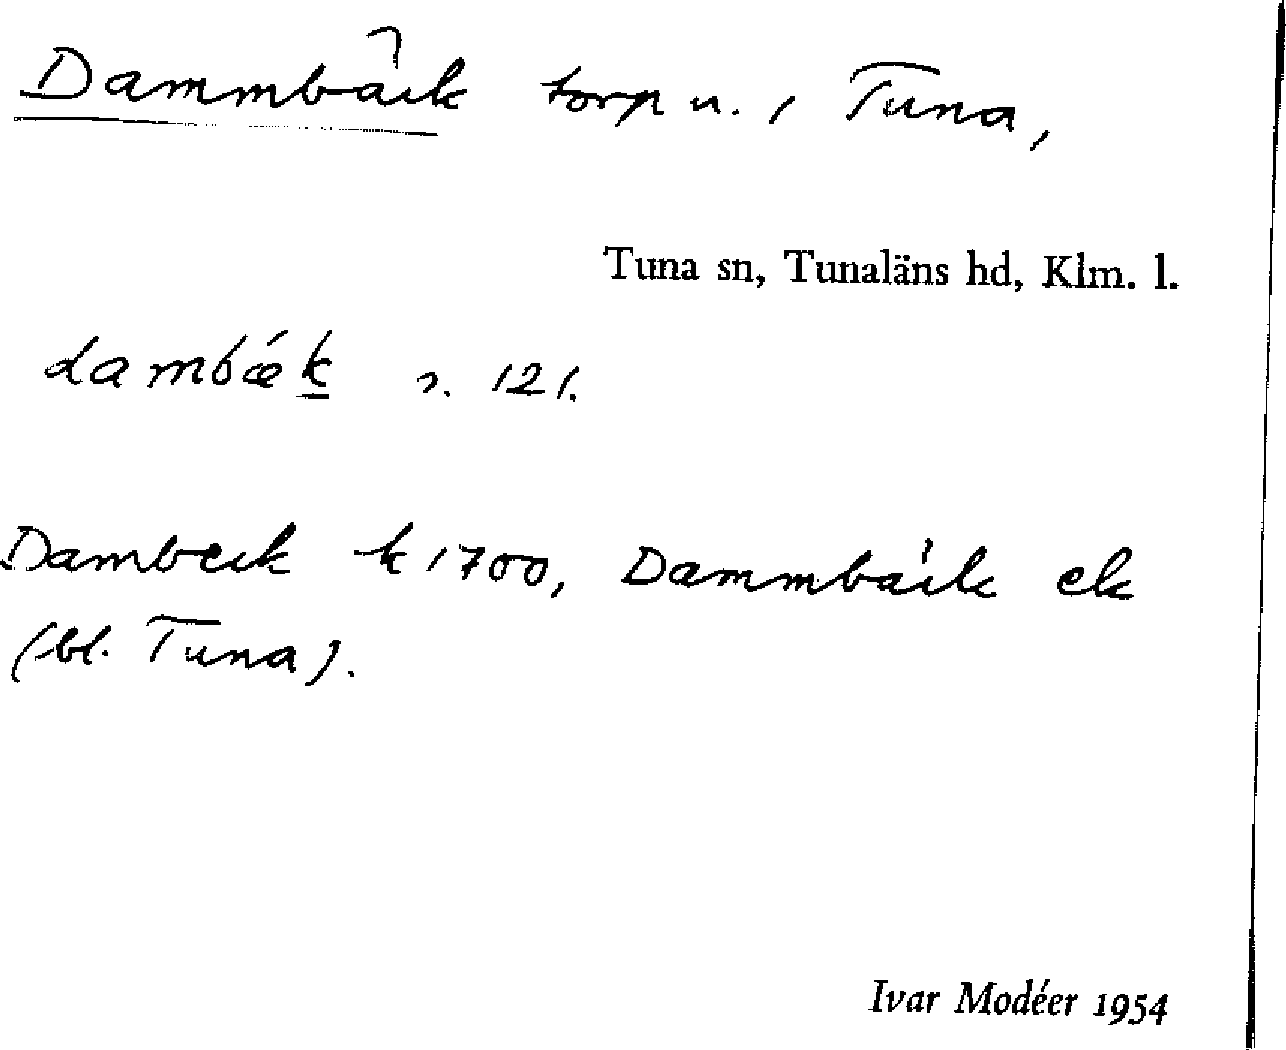 Dammbäck torp u. / Tuna,
Tuna sn, Tunaläns hd, Klm. l.
dambǽk s. 121.
Dambeck k 1700, Dammbäck ek
(bl. Tuna).
Ivar Modéer 1954